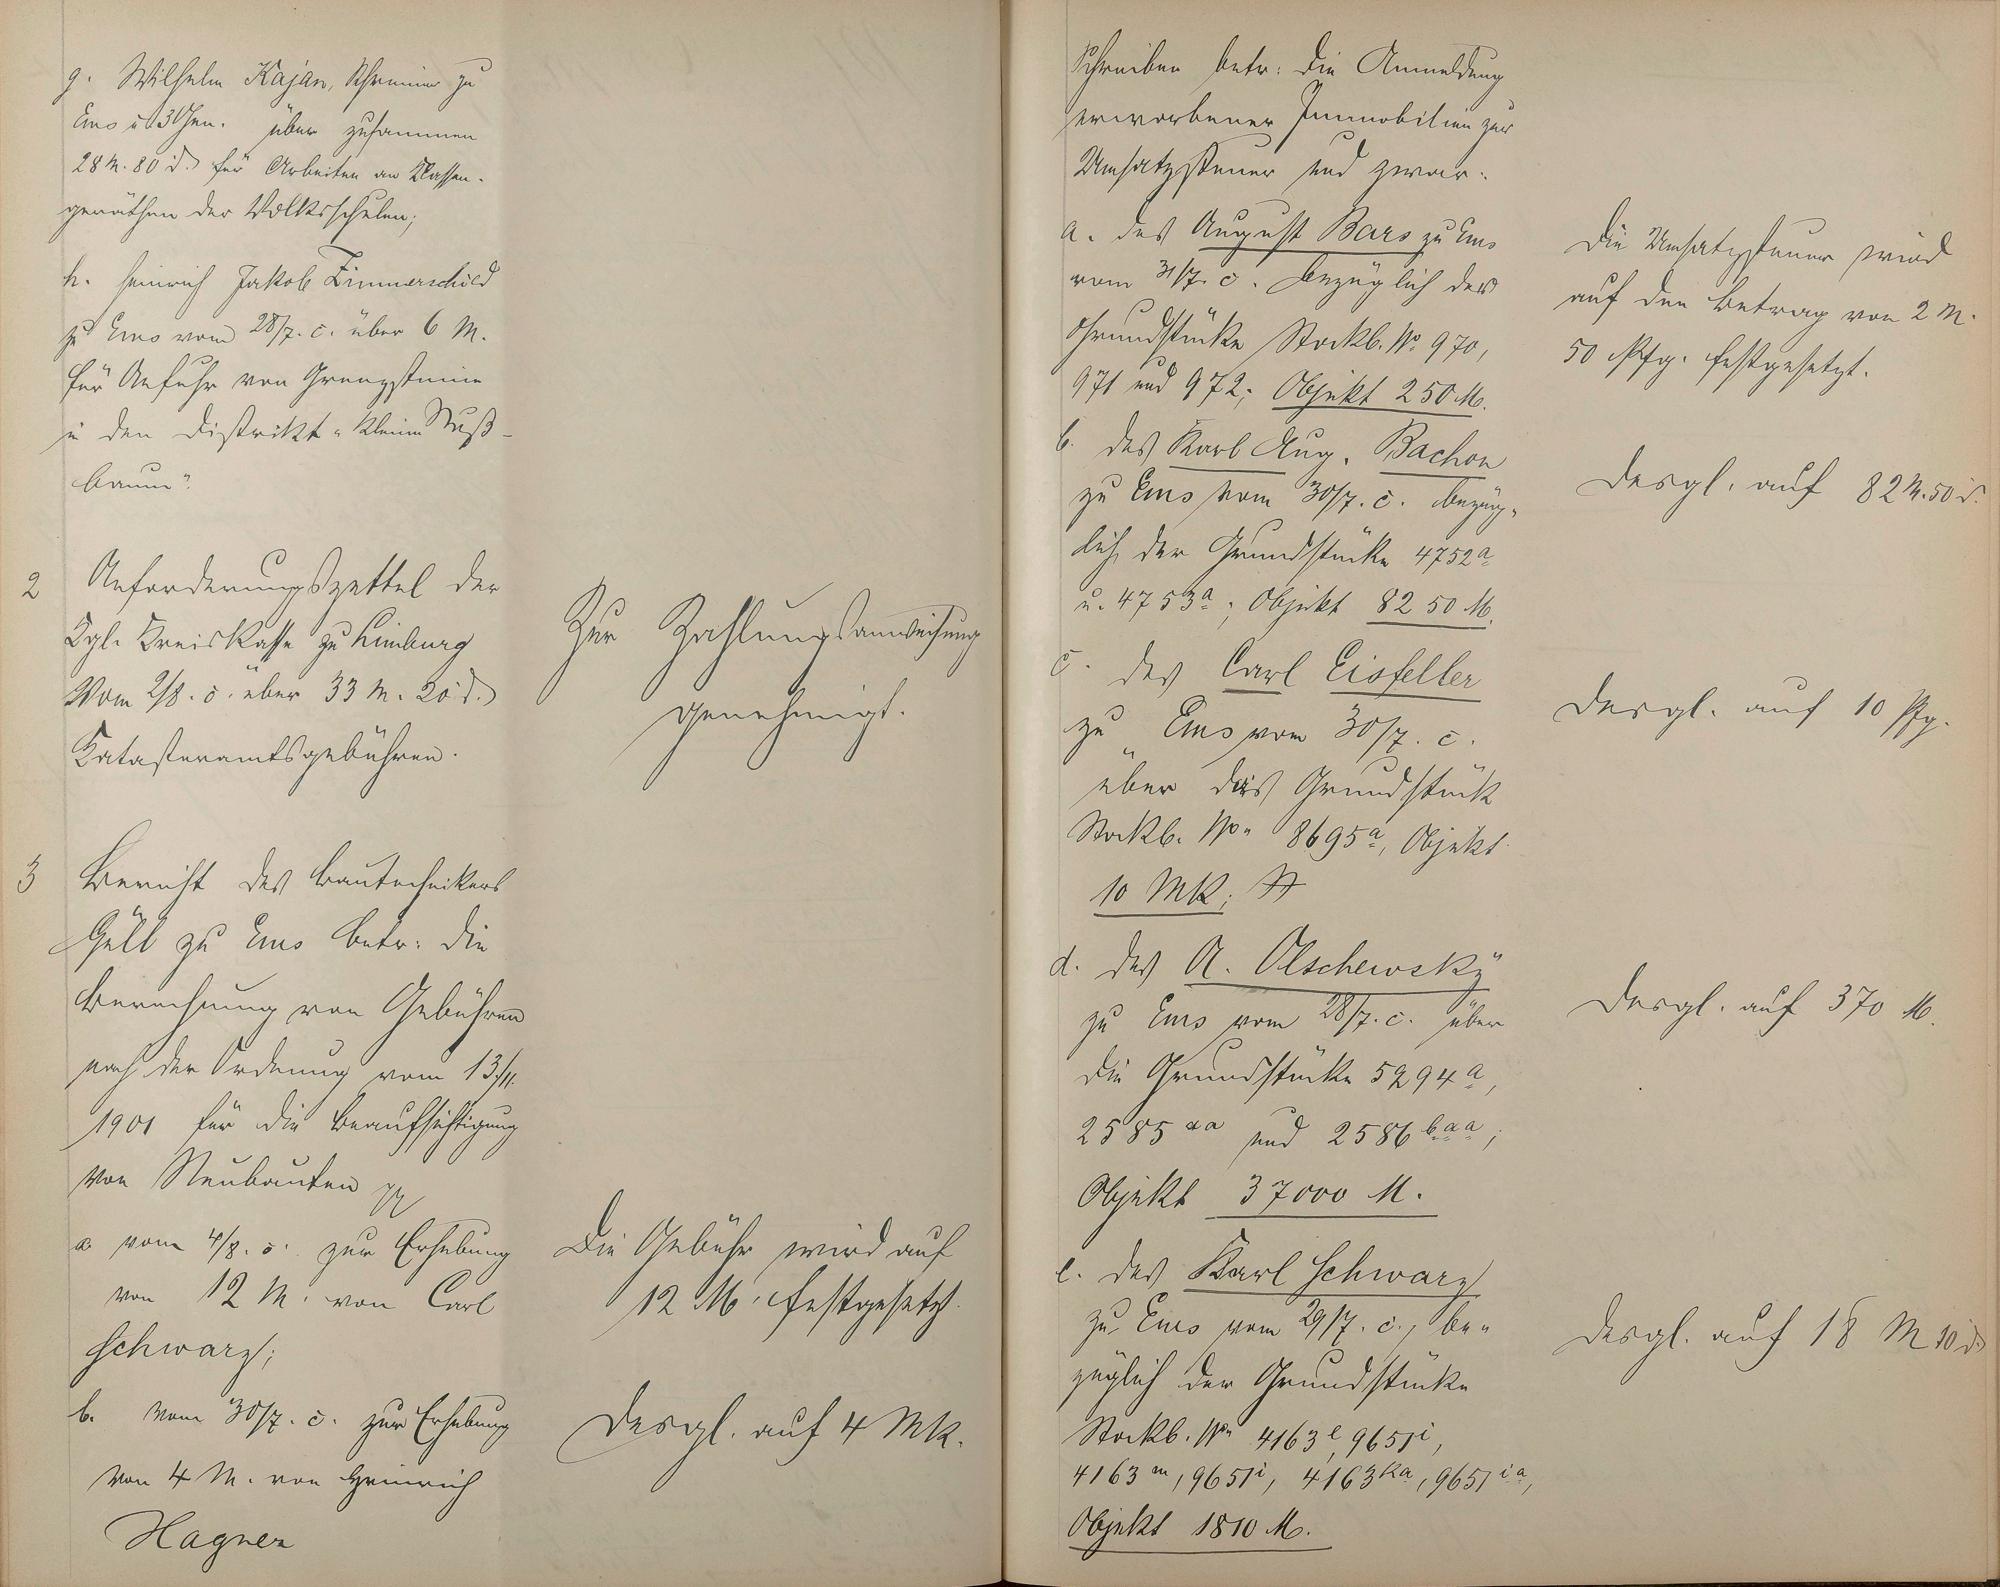 g. Wilhelm Kajan, Schreiner zu
Ems u. 3 Gen. über zusammen
28 M. 80 d. für Arbeiten an Klassen-
geräthen der Volksschulen;
h. Heinrich Jakob Zimmerschied
zu Ems vom 28/7. c. über 6 M.
für Anfuhr von Grenzsteine
in den Distrikt „Kleine Nuß-
baum“.
2 Anforderungszettel der
Kgl. Kreiskasse zu Limburg
vom 2/8. c. über 33 M. 20 d.
Katasteramtsgebühren.
Zur Zahlungsanweisung
genehmigt.
3 Bericht des Bautechnikers
Güll zu Ems betr. die
Berechnung von Gebühren
nach der Ordnung vom 13/11.
1901 für die Beaufsichtigung
von Neubauten
a vom 4/8. c. zur Erhebung
von 12 M. von Carl
Schwarz;
Die Gebühr wird auf
12 M. festgesetzt.
b. vom 30/7. c. zur Erhebung
von 4 M. von Heinrich
Hagner
Desgl. auf 4 Mk.
Schreiben betr. die Anmeldung
erworbener Immobilien zur
Umsatzsteuer und zwar:
a. des August Bars zu Ems
vom 31/7. c. bezüglich der
Grundstücke Stockb. No. 970,
971 und 972; Objekt 250 M.
Die Umsatzsteuer wird
auf den Betrag von 2 M.
50 Pfg. festgesetzt.
b. des Karl Aug. Bachon
zu Ems vom 30/7. c. bezüg-
lich der Grundstücke 4752a
u. 4753a; Objekt 8250 M.
Desgl. auf 82 M. 50 d.
c. des Carl Eisfeller
zu Ems vom 30/7. c.
über das Grundstück
Stockb. No. 8695a, Objekt
10 Mk;
Desgl. auf 10 Pfg.
d. des A. Olschewsky
zu Ems vom 28/7. c. über
die Grundstücke 5294a,
2585aa und 2586baa;
Objekt 37000 M.
Desgl. auf 370 M.
e. des Karl Schwarz
zu Ems vom 29/7. c., be-
züglich der Grundstücke
Stockb. No. 4163l, 9651i,
4163m, 9651i, 4163ka, 9651ia,
Objekt 1810 M.
Desgl. auf 18 M 10 d.